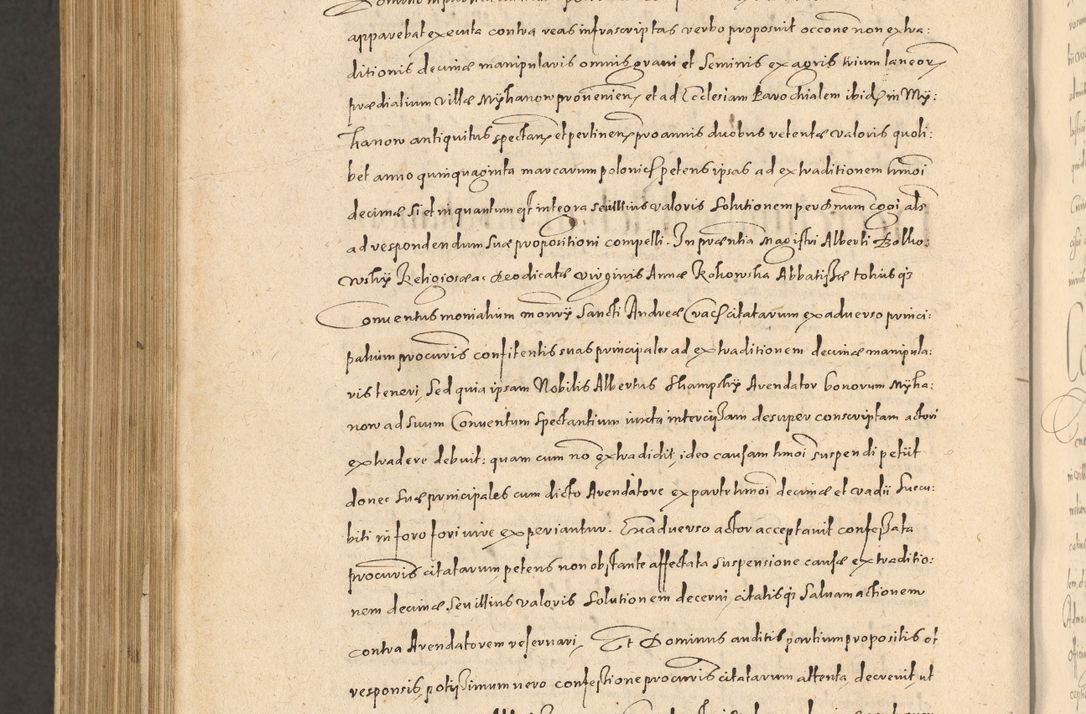 apparebat executa contra reas infrascriptas verbo proposuit occõne non extra:
ditionis decimæ manipularis omnis grani et Seminis ex agris trium laneor
prædialium villæ Mÿhanow provenien, et ad Ecclesiam Parochialem ibid in Mÿ:
hanow antiquitus spectan et pertinen, pro annis duobus retentæ valoris quoli:
bet anno quinquaginta marcarum polonic petens ipsas ad extraditionem hmoi
decimæ Si et in quantum est integra seu illius valoris Solutionem per Dnum cogi als
ad respondendum suæ propositioni compelli. In præntia Magistri Alberti
wskÿ Religiosæ ac Deodicatæ virginis Annæ Rokowska Abbatissæ totiusq
Conventus monialium monrÿ Sancti Andreæ Crac citatarum ex adverso princi:
palium procuris confitentis suas principales ad extraditionem decimæ manipula:
ris teneri, Sed quia ipsam Nobilis Albertus Slampskÿ Arendator bonorum Mÿha:
now ad suum Conventum Spectantium iuxta intercisam desuper conscriptam actori
extradere debuit: quam cum nõ extradidit, ideo causam hmoi suspendi petiit
donec Suæ principales cum dicto Arendatore ex parte hmoi decimæ et vadii Succu:
biti in foro fori iure experiantur. Ex adverso actor acceptavit confessata
procuris citatarum petens non obstante affectata suspensione causæ extraditio:
nem decimæ Seu illius valoris Solutionem decerni citatisq Salvam actionem
contra Arendatorem reservari, Et Dominus auditis partium propositis et
responsis, potissimum vero confessione procuris citatarum attenta, decrevit, ut